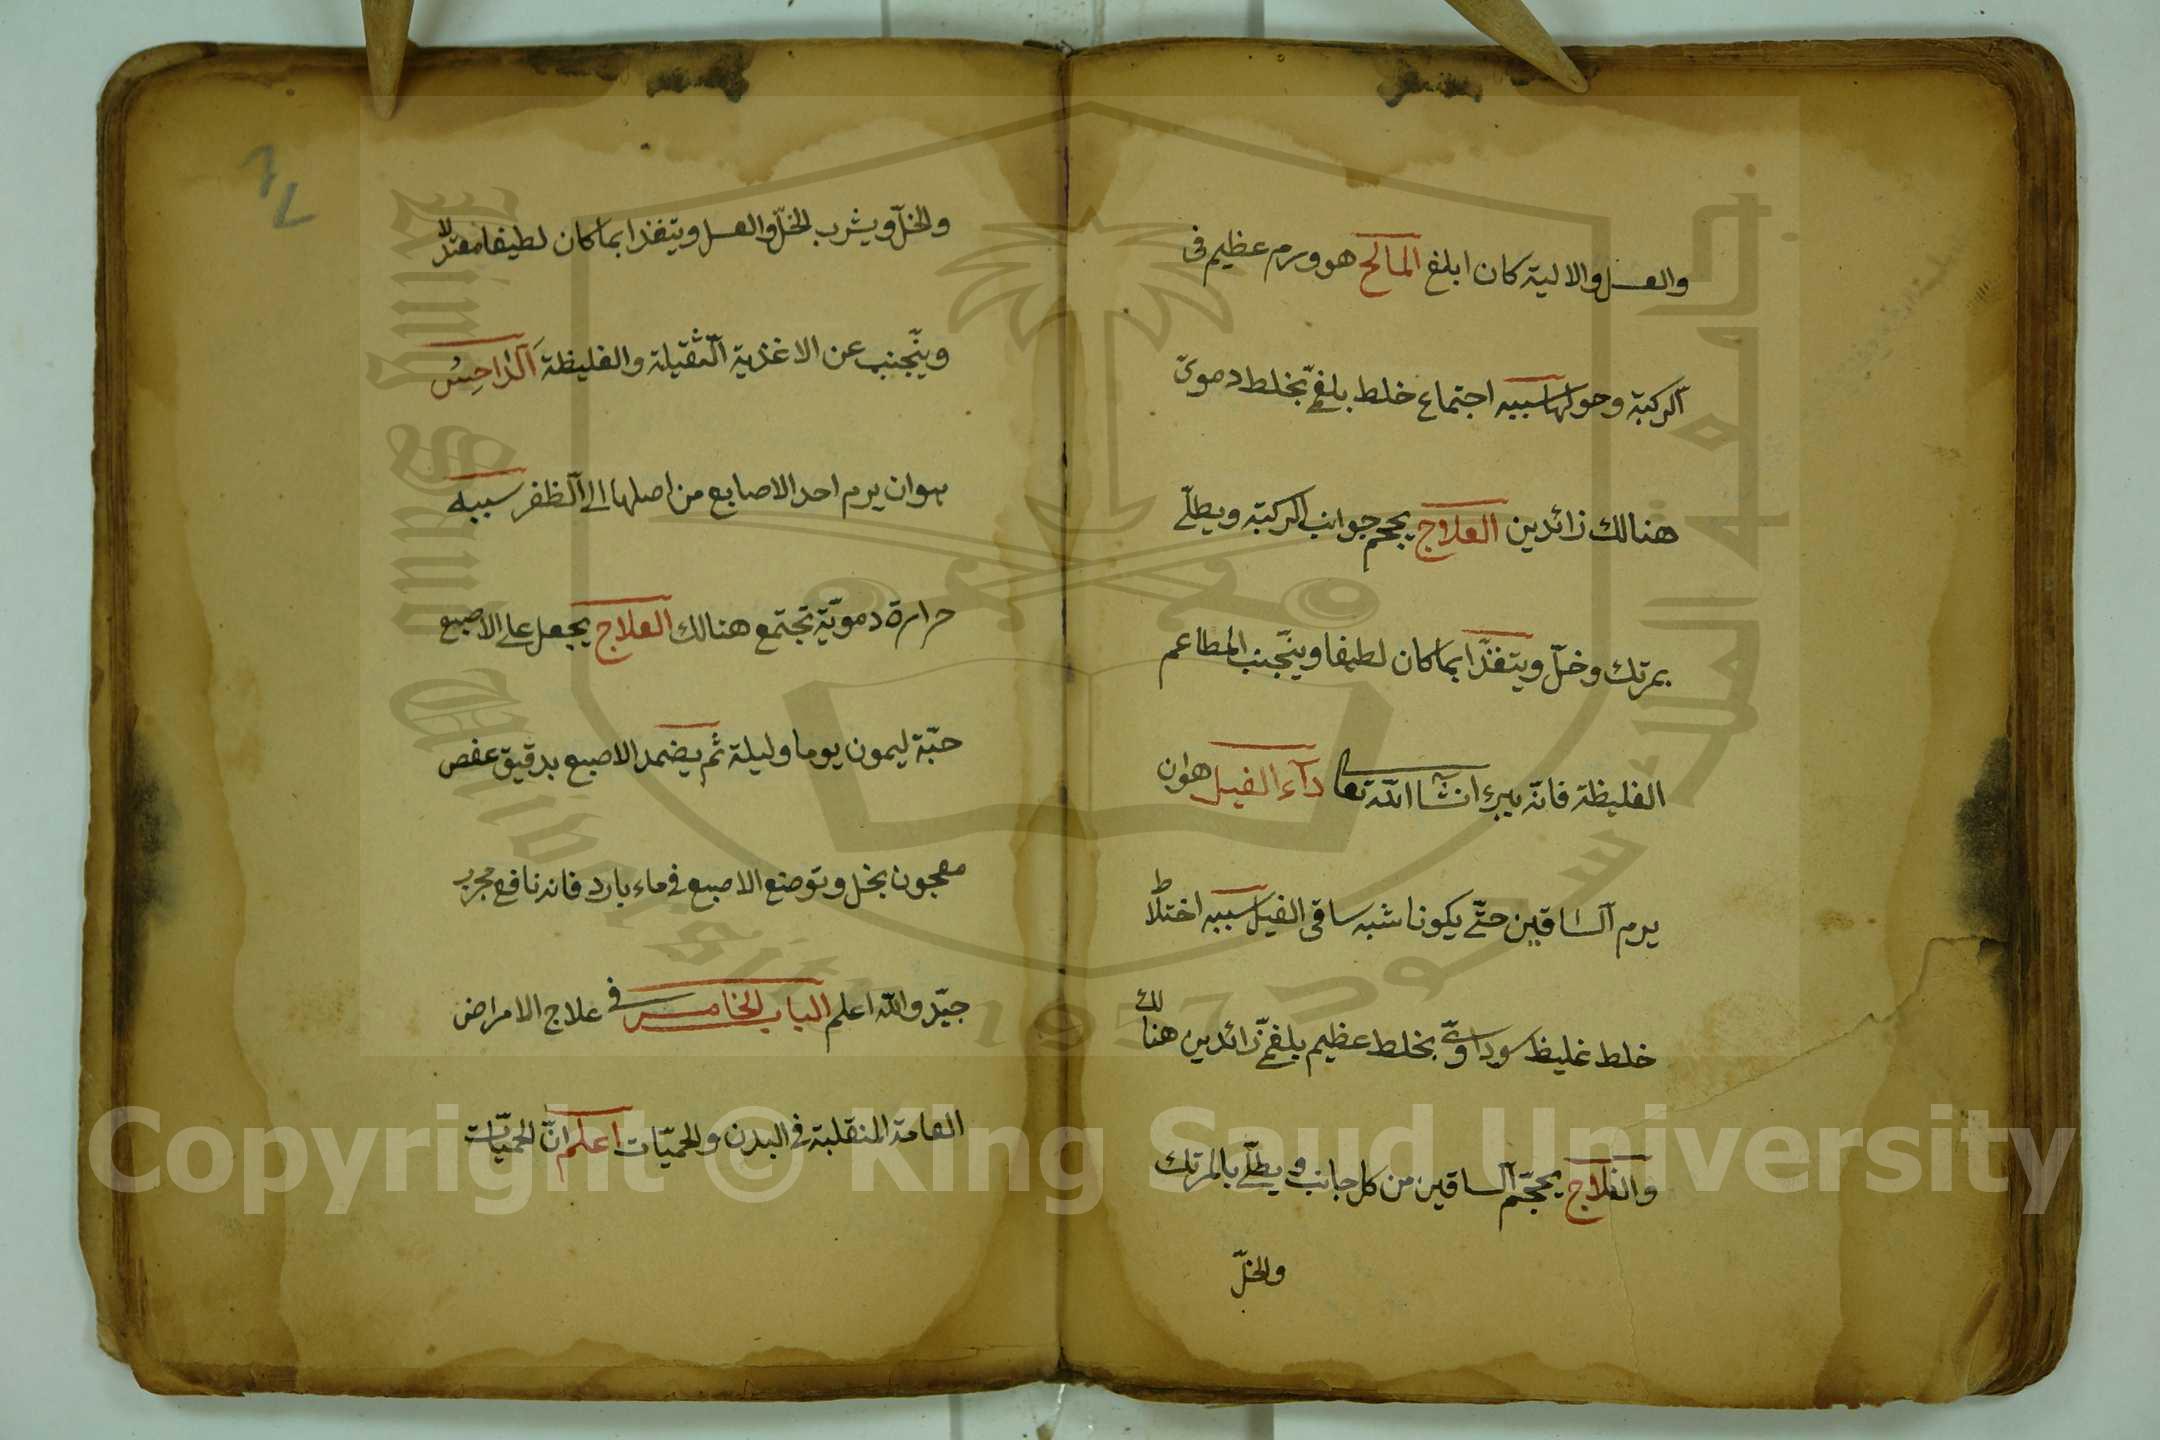 والعسل والالية كان ابلغ المالح هو ورم عظيم فى
الركبة وحولها سببه اجتماع خلط بلغمىّ بخلط دموىّ
هنالك زائدين العلاج يحجم جوانب الركبة ويطلى
بمرتك وخلّ ويتغذّا بما كان لطيفا ويتجنب المطاعم
الغليظة فانّه يبرء انشآء اللّه تعالى دآء الفيل هو ان
يرم السّاقين حتّى يكونا شبه ساقى الفيل سببه اختلاط
خلط غليظ سوداوىّ بخلط عظيم بلغمىّ زائدين هنالك
والعلاج يحجّم الساقين من كل جانب ويطلّى بالمرتك
والخلّ
والخلّ ويشرب الخلّ والعسل ويتغذا بما كان لطيفا معتدلا
ويتجّنب عن الاغذية الثّقيلة والغليظة الدَّاحِسُ
هو ان يرم احد الاصابع من اصلها الى الظفر سببه
حرارة دمويّة تجتمع هنالك العلاج يجعل على الاصبع
حبّة ليمون يوما وليلة ثمّ يضمد الاصبع بدقيق عفص
معجون بخل وتوضع الاصبع فى ماء بارد فانه نافع مجرب
جيّد واللّه اعلم الباب الخامس فى علاج الامراض
العامة المنقلبة فى البدن والحميّات اعلم انّ الحميّات
Copyright © King Saud University
جامعة الملك سعود
King Saud University
1957